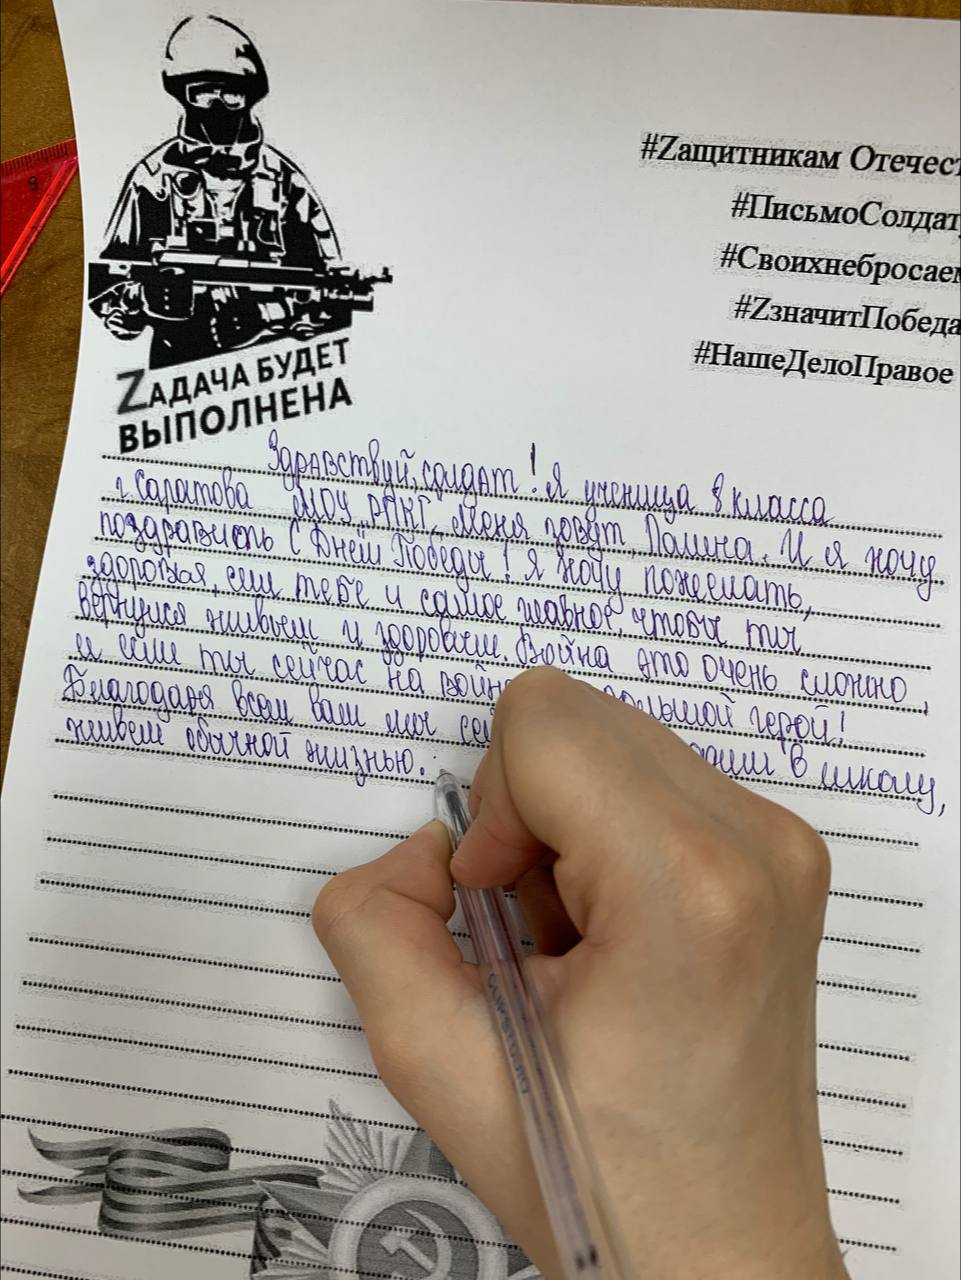 #Zащитникам Отечест
#ПисьмоСолдату
#Своихнебросаем
#ZзначитПобеда
#НашеДелоПравое
ZАДАЧА БУДЕТ
ВЫПОЛНЕНА
Здравствуй, солдат! Я ученица 8 класса
г. Саратова МОУ РПКГ. Меня зовут Полина. И я хочу
поздравить с Днём Победы! Я хочу пожелать,
здоровья, сил тебе и самое главное, чтобы ты
вернулся живым и здоровым. Война это очень сложно,
и если ты сейчас на войне большой герой!
Благодаря всем вам мы в школу,
живем обычной жизнью.